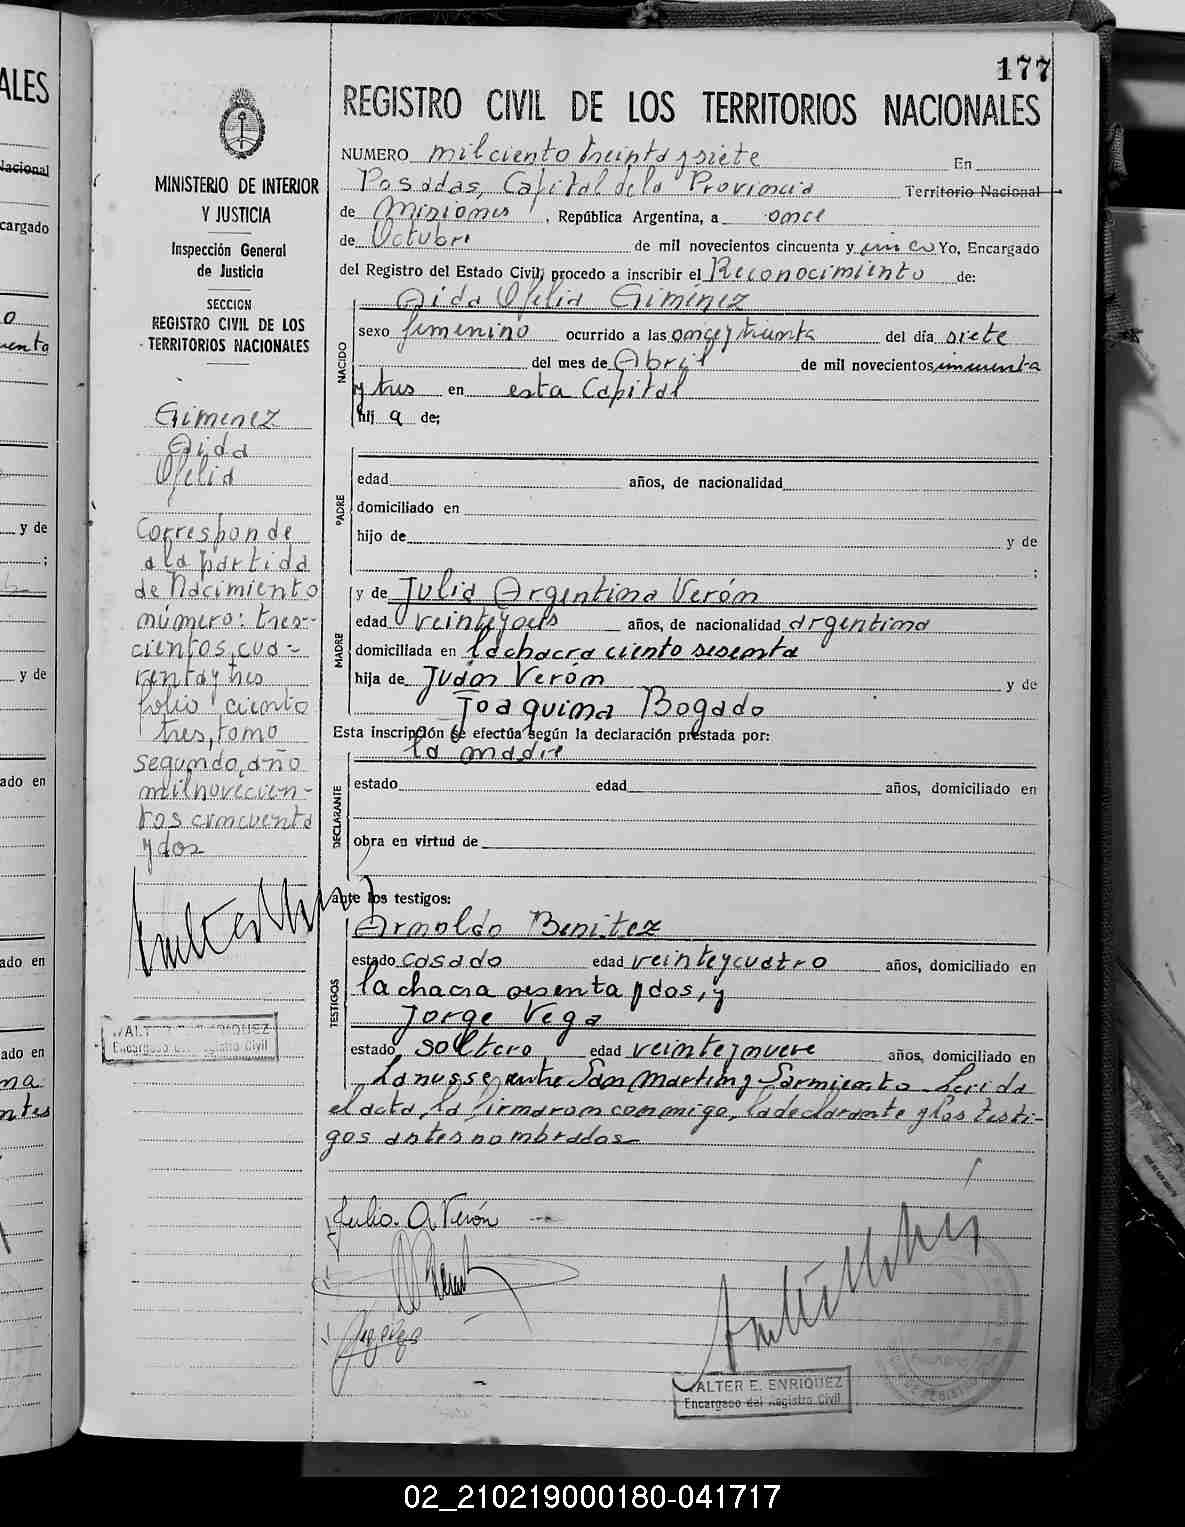 177
REGISTRO CIVIL DE LOS TERRITORIOS NACIONALES
NUMERO mil ciento treinta y siete En
Posadas, Capital de la Provincia Territorio Nacional
de Misiones, República Argentina, a once
de Octubre de mil novecientos cincuenta y Yo, Encargado
del Registro del Estado Civil, procedo a inscribir el Reconocimiento de:
Aida Ofelia Giménez
NACIDO
sexo femenino ocurrido a las once y treinta del día siete
del mes de Abril de mil novecientos cincuenta
y tres en esta Capital
hij a de;
PADRE
edad años, de nacionalidad
domiciliado en
hijo de y de
;
MADRE
y de Julia Argentina Verón
edad años, de nacionalidad argentina
domiciliada en la chacra ciento sesenta
hija de Juan Verón y de
Joaquina Bogado
Esta inscripción se efectúa según la declaración prestada por:
la madre
DECLARANTE
estado edad años, domiciliado en
obra en virtud de
ante los testigos:
TESTIGOS
Arnoldo Benitez
estado casado edad veinte y cuatro años, domiciliado en
la chacra sesenta y dos, y
Jorge Vega
estado soltero edad veinte y nueve años, domiciliado en
Lanusse entre San Martin y Sarmiento Leida
el acta, la firmaron conmigo, la declarante y los testi-
gos antes nombrados
Julia. A Verón
WALTER E. ENRIQUEZ
Encargado del Registro Civil
MINISTERIO DE INTERIOR
Y JUSTICIA
Inspección General
de Justicia
SECCION
REGISTRO CIVIL DE LOS
TERRITORIOS NACIONALES
Giménez
Aida
Ofelia
Corresponde
a la partida
de Nacimiento
número: tres-
cientos cua-
renta y tres
folio ciento
tres, tomo
segundo, año
mil novecien-
tos cincuenta
y dos
WALTER E. ENRIQUEZ
Encargado del Registro Civil
ALES
Nacional
cargado
y de
;
y de
ado en
ado en
ado en
02_210219000180-041717